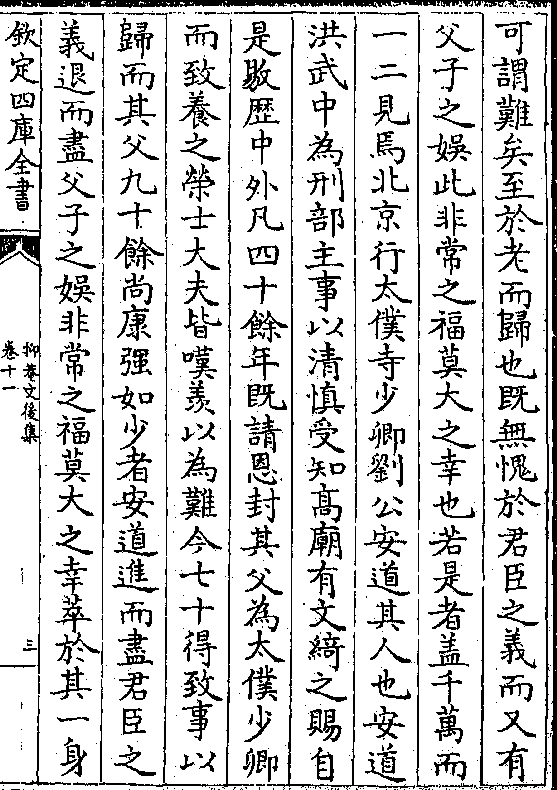 可謂難矣至於老而歸也既無愧於君臣之義而又有
父子之娛此非常之福莫大之幸也若是者盖千萬而
一二見焉北京行太僕寺少卿劉公安道其人也安道
洪武中為刑部主事以清慎受知髙廟有文綺之賜自
是敭歴中外凡四十餘年既請恩封其父為太僕少卿
而致養之榮士大夫皆嘆羨以為難今七十得致事以
歸而其父九十餘尚康强如少者安道進而盡君臣之
義退而盡父子之娛非常之福莫大之幸萃於其一身
欽定四庫全書
抑菴文後集
卷十一
三